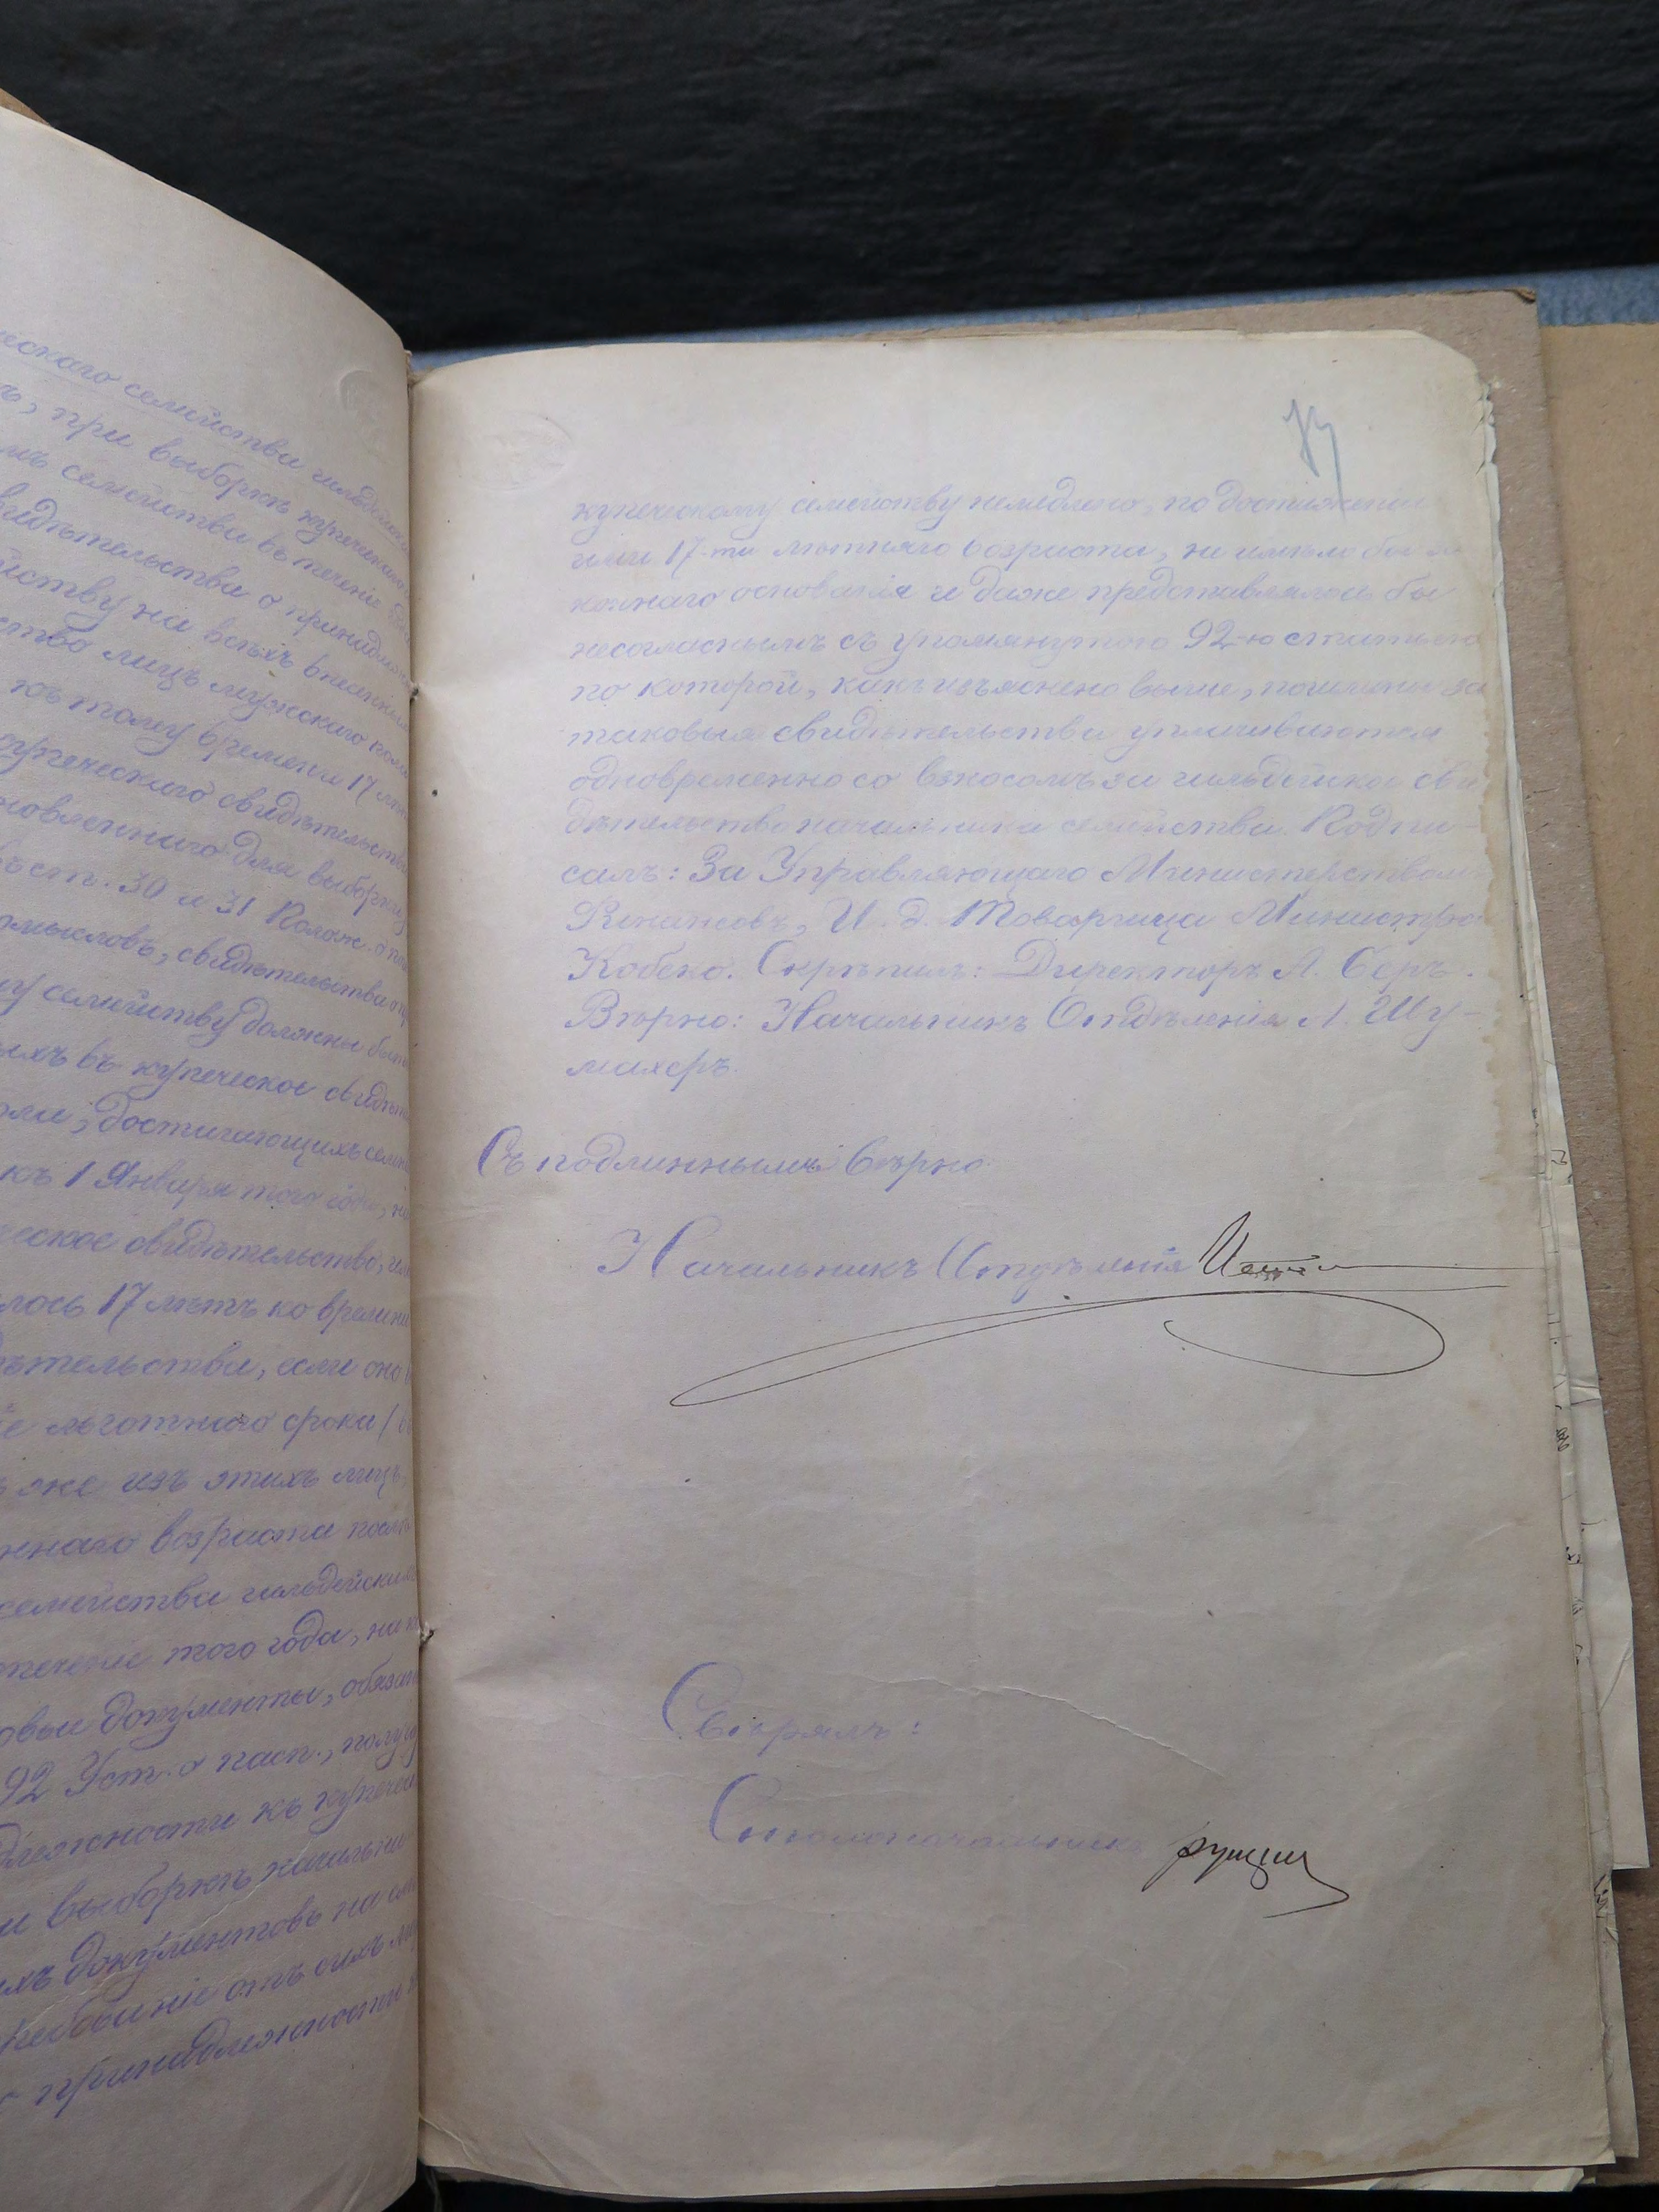 ческаго семейства гильдейска
ъ, при выборкѣ купеческаго
мъ семейства въ теченіе
свидѣтельства о принадлеж
йству на всѣхъ внесенныхъ
ство лицъ мужскаго пола
къ тому времени 17 лѣт
купеческаго свидѣтельства
новленнаго для выборки
ст. 30 и 31 Полож. о по
омысловъ, свидѣтельства о пр
му семейству должны быть
ыхъ въ купеческое свидѣт
достигающихъ семн
къ 1 Января того года, на
ческое свидѣтельство, или
лось 17 лѣтъ ко времени
дѣтельства, если оно
е льготнаго срока
же изъ этихъ лицъ
ннаго возраста послѣ
семейства гильдейскихъ
теченіе того года, на к
овые документы, обязан
92 Уст. о пасп., получ
длежности къ купечес
и выборкѣ начальни
хъ документовъ на
ребованіе отъ сихъ
принадлежности
купеческому семейству немедленно, по достиженіи
ими 17-ти лѣтняго возраста, не имѣло бы за
коннаго основанія и даже представлялось бы
несогласнымъ съ упомянутою 92-ю статьею
по которой, какъ изъяснено выше, пошлины за
таковыя свидѣтельства уплачиваются
одновременно со взносомъ за гильдейское сви
дѣтельство начальника семейства. Подпи-
салъ: За Управляющаго Министерствомъ
Финансовъ, И. д. Товарища Министра
Кобеко. Скрѣпилъ: Директоръ А. Беръ.
Вѣрно: Начальникъ Отдѣленія А. Шу-
махеръ.
Съ подлиннымъ вѣрно
Начальникъ Отдѣленія
Свѣрялъ:
Столоначальникъ